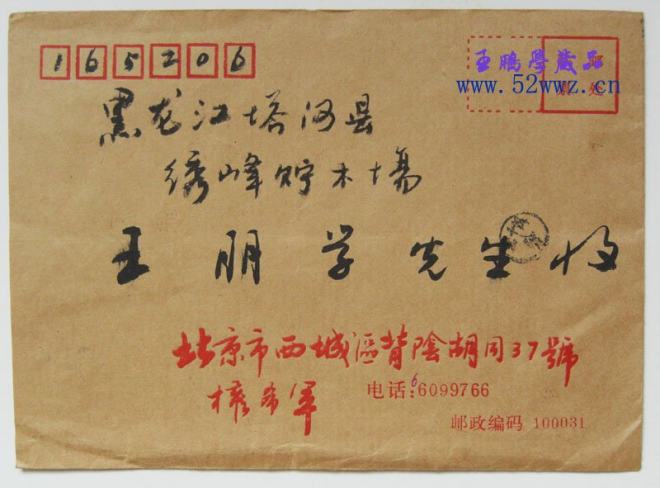 165206
王鹏學藏品
www.52wwz.cn
黑龙江塔河县
绣峰贮木場
王朋学先生收
北京市西城區背陰胡同37號
电话:66099766
邮政编码 100031